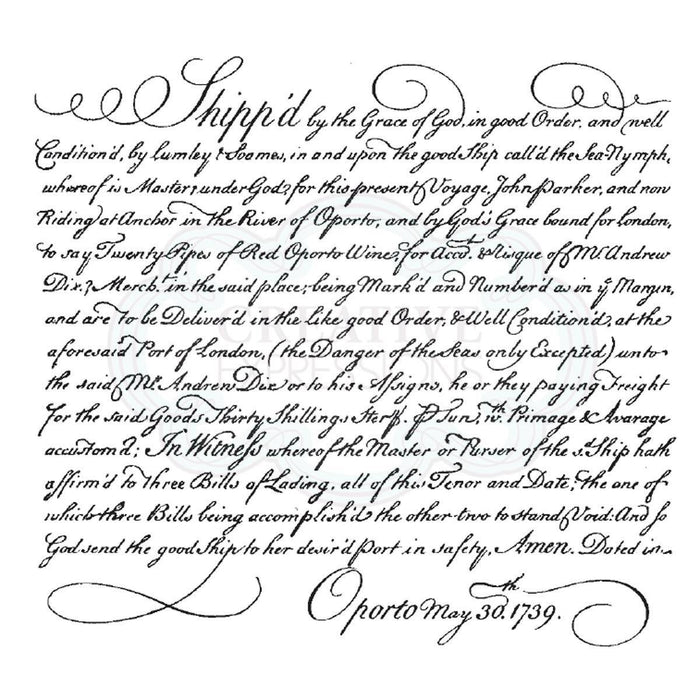 Shipp'd by the Grace of God, in good Order, and well
Condition'd, by Lumley & Soames, in and upon the good Ship call'd the Sea-Nymph,
whereof is Master, under God, for this present Voyage, John Parker, and now
Riding at Anchor in the River of Oporto, and by God's Grace bound for London,
to say Twenty Pipes of Red Oporto Wine, for Acct. & Risque of Mr. Andrew
Dix, Mercht. in the said place; being Mark'd and Number'd as in ye Margin,
and are to be Deliver'd in the like good Order, & Well Condition'd, at the
aforesaid Port of London, (the Danger of the Seas only Excepted) unto
the said Mr. Andrew Dix or to his Assigns, he or they paying Freight
for the said Goods Thirty Shillings Sterl. Tun, wth. Primage & Avarage
accustom'd; In Witness whereof the Master or Purser of the sd. Ship hath
affirm'd to three Bills of Lading, all of this Tenor and Date, the one of
which three Bills being accomplish'd the other two to stand Void: And so
God send the good Ship to her desir'd Port in safety, Amen. Dated in
Oporto May 30th. 1739.
CREATIVE
EXPRESSIONS